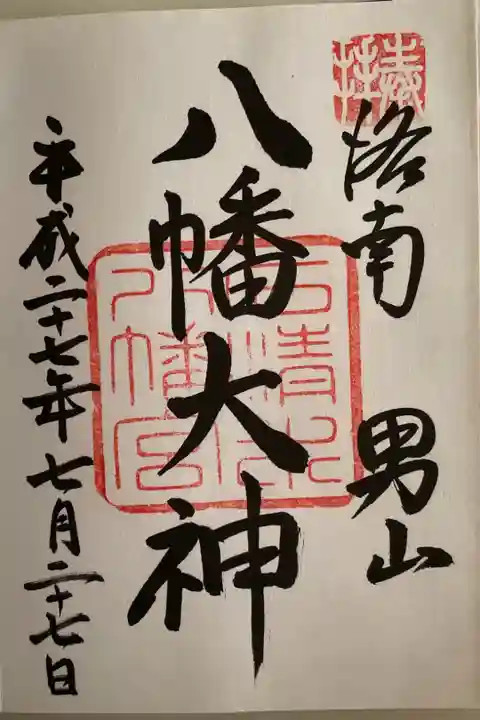 奉拝
洛南 男山
八幡大神
石清水
八幡宮
平成二十七年七月二十七日